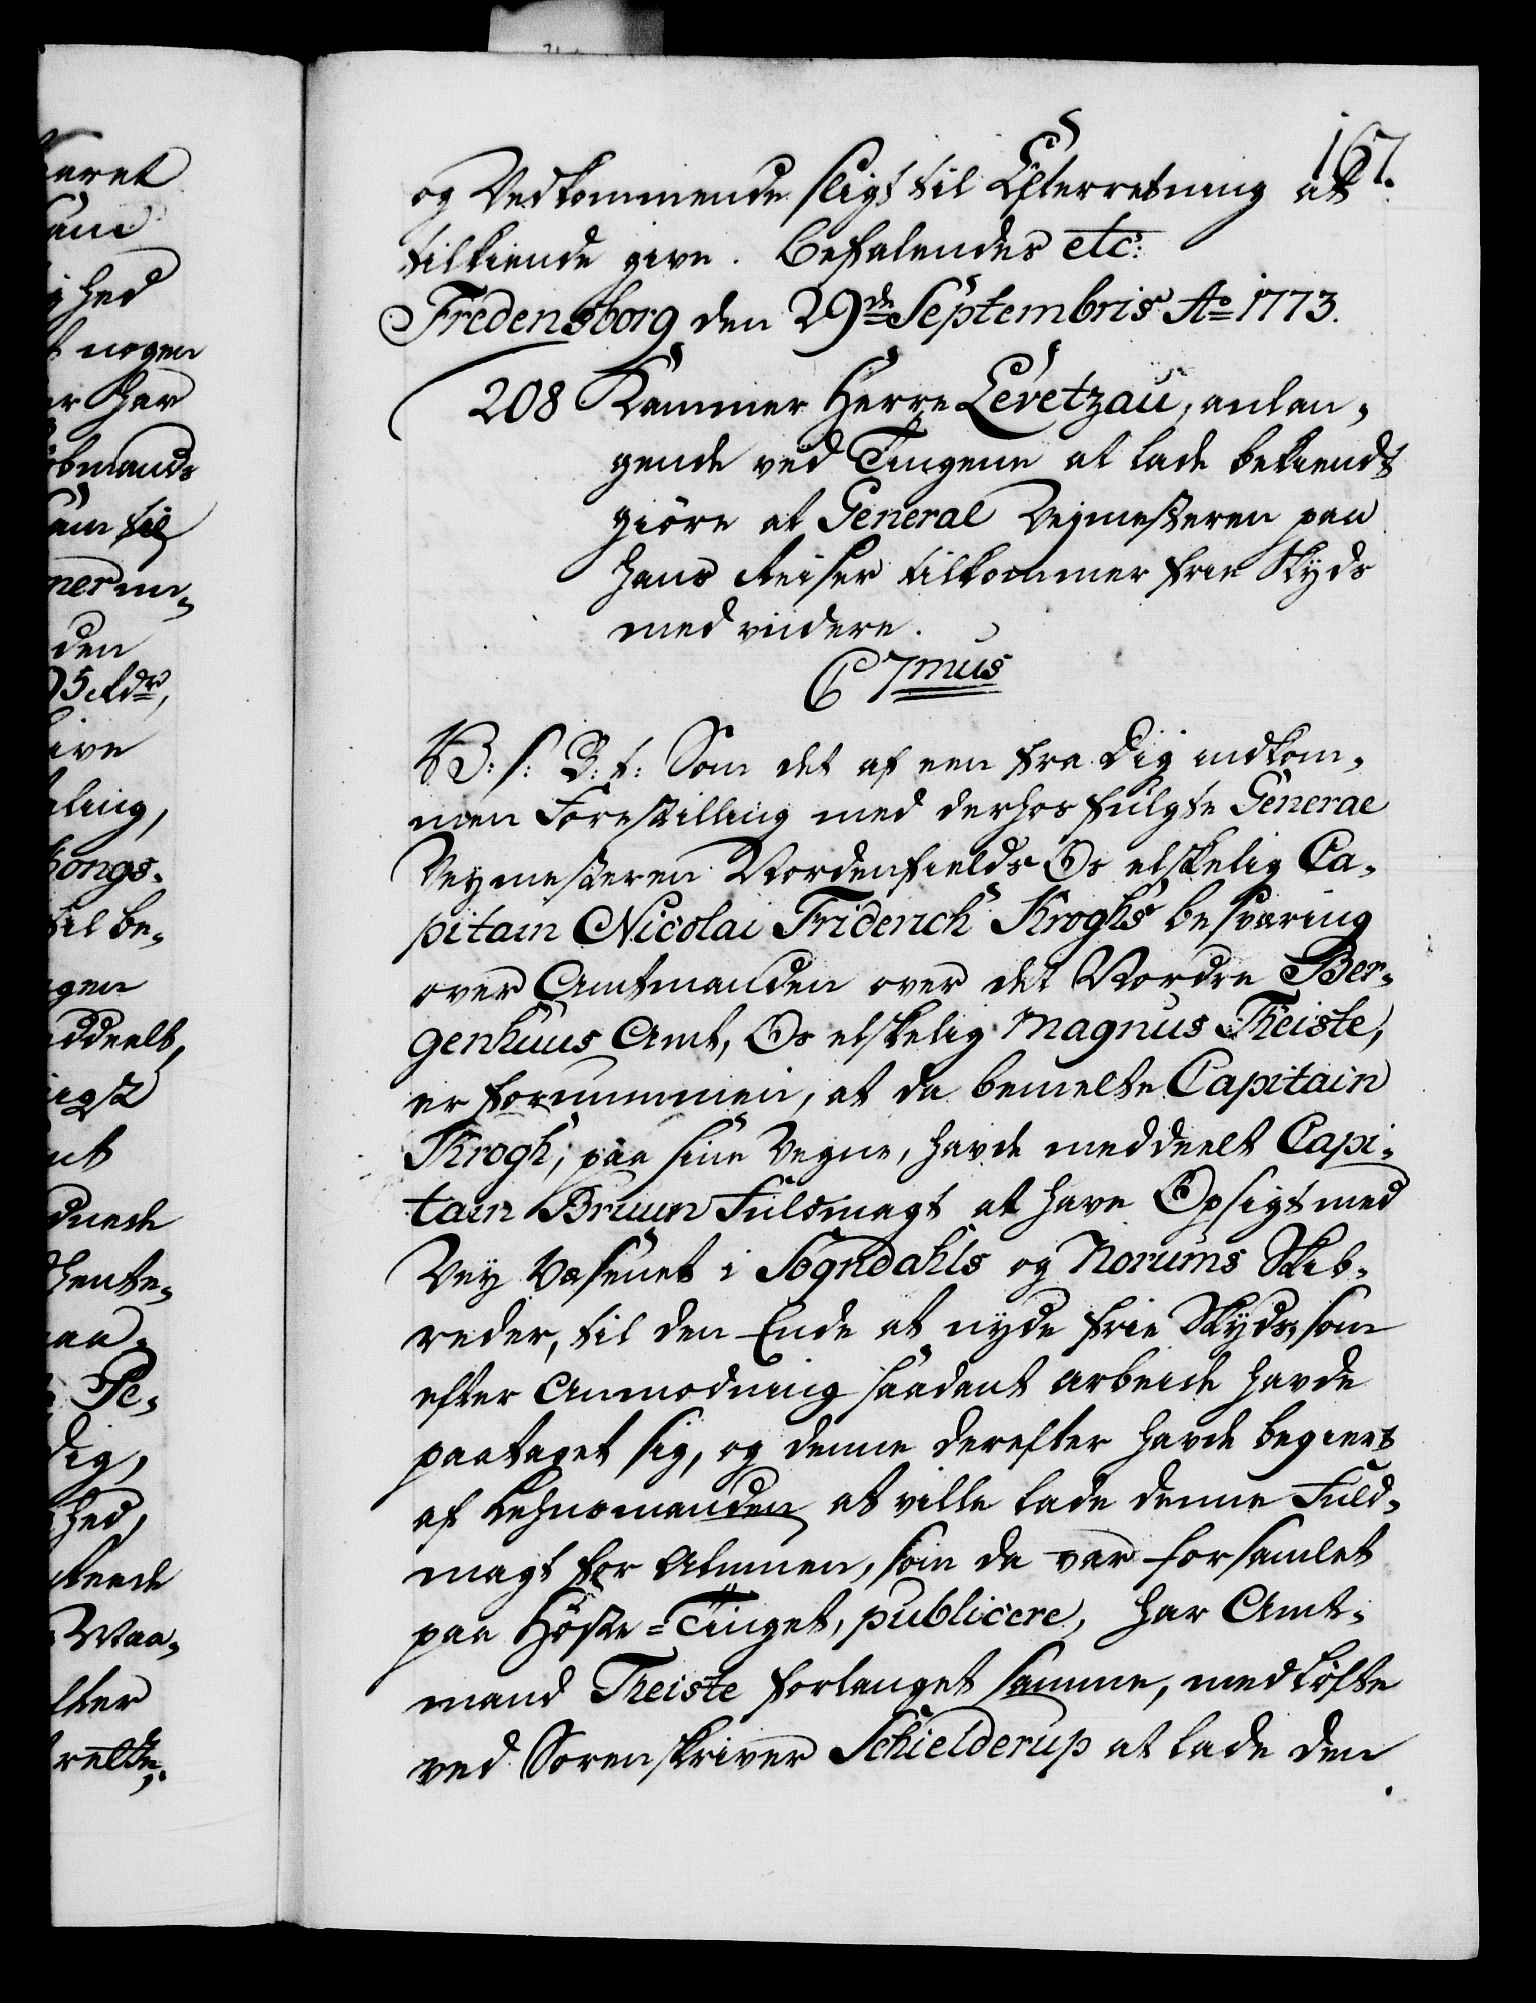 aret
ighed
t nogen
er Har
øbmands
til
den
95 Rdr,
ive
ling,
Kongs-
til be-
gen
nt
aa-
Pe-
dig,
hed,
Waa-
fter
167.
og Vedkommende sligt til Efterretning at
tilkiende give. Befalendes etc:
Fredensborg den 29de Septembris Ao 1773.
208 Kammer Herre Levetzau, anlan-
gende ved Tingene at lade bekiendt
giöre at General Vejmesteren paa
hans Reiser tilkommer frie Skyds
med viidere.
C 7mus
V: s: B: t: Som det af een fra Dig indkom-
men Forestilling med derhos fulgte General
Veymesteren Nordenfields Os elskelig Ca-
pitain Nicolai Friderich Kroghs besværing
over Amtmanden over det Nordre Ber-
genhuus Amt, Os elskelig Magnus Theiste,
er fornummen, at da bemelte Capitain
Krogh, paa sine Vegne, havde meddeelt Capi-
tain Bruun Fuldmagt at have Opsigt med
Vey Væsenet i Sogndahls og Norums Skib-
reder, til den Ende at nyde frie Skyds, som
efter Anmodning saadant Arbeide havde
paataget sig, og denne derefter havde begiert
af Lehnsmanden at ville lade denne Fuld-
magt for Almuen, som da var forsamlet
paa Höste-Tinget, publicere, har Amt-
mand Theiste forlanget samme, med Löfte
ved Sorenskriver Schielderup at lade den